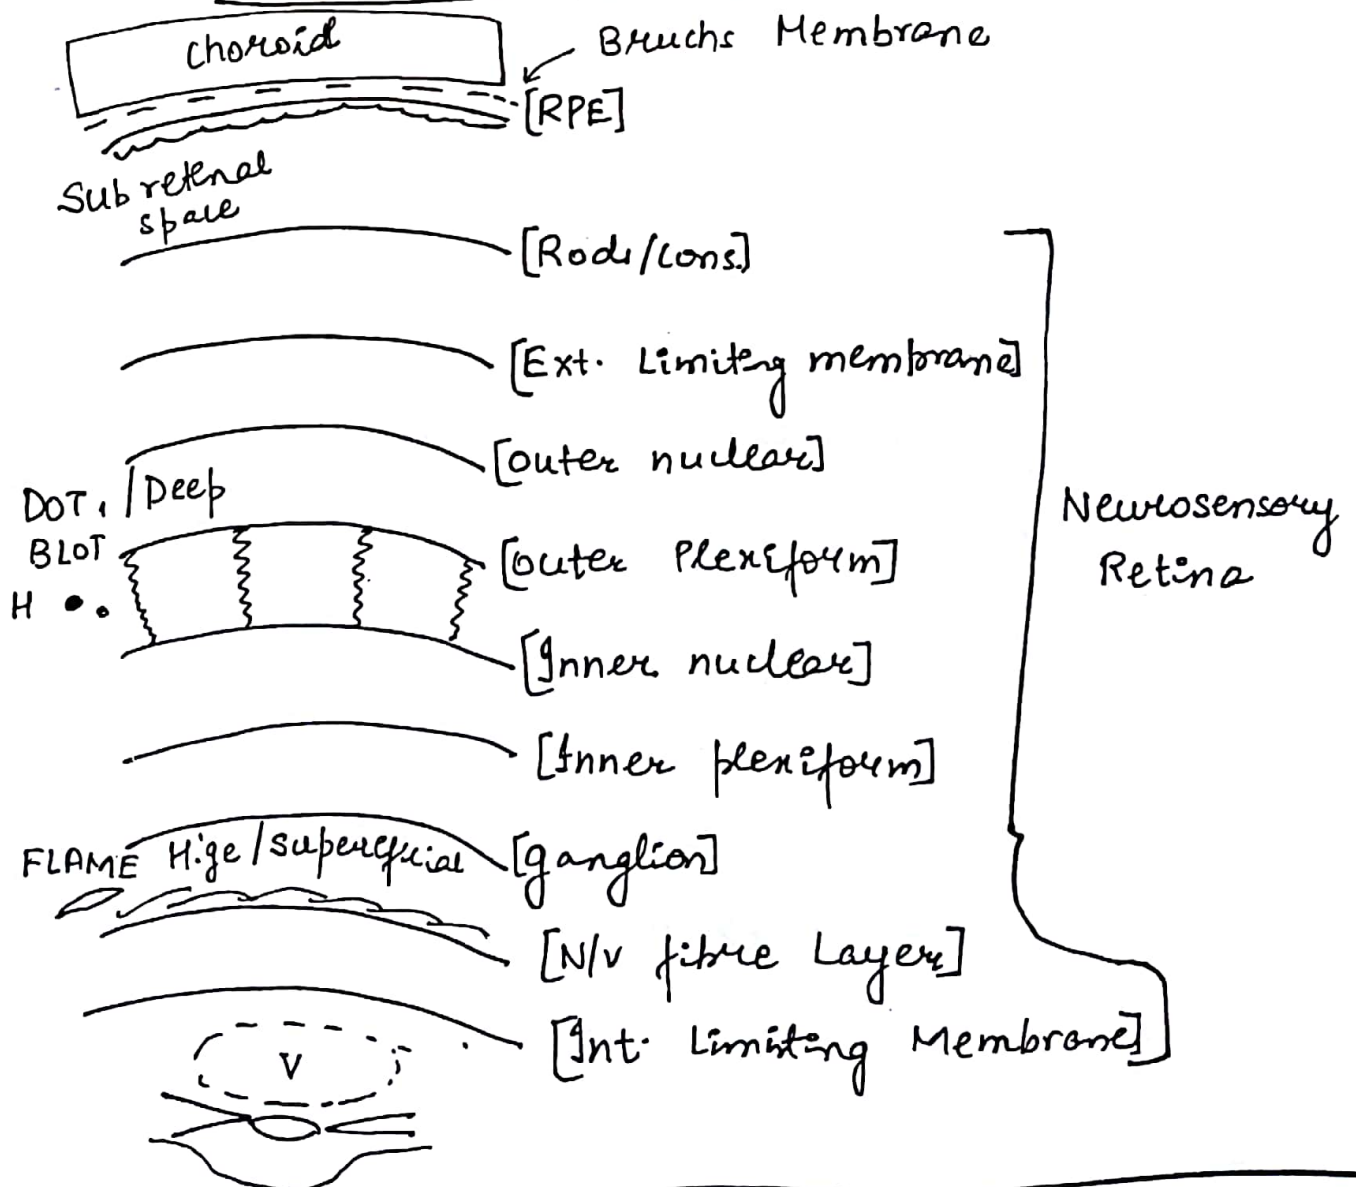 Choroid
Bruchs Membrane
[RPE]
Sub retinal
space
[Rods/cons.]
[Ext. Limiting membrane]
[outer nuclear]
DOT, /Deep
BLOT
[outer Plexiform]
H
[Inner nuclear]
[Inner plexiform]
FLAME H.ge/superficial
[ganglion]
[N/v fibre Layer]
[Int. Limiting Membrane]
V
Neurosensory
Retina